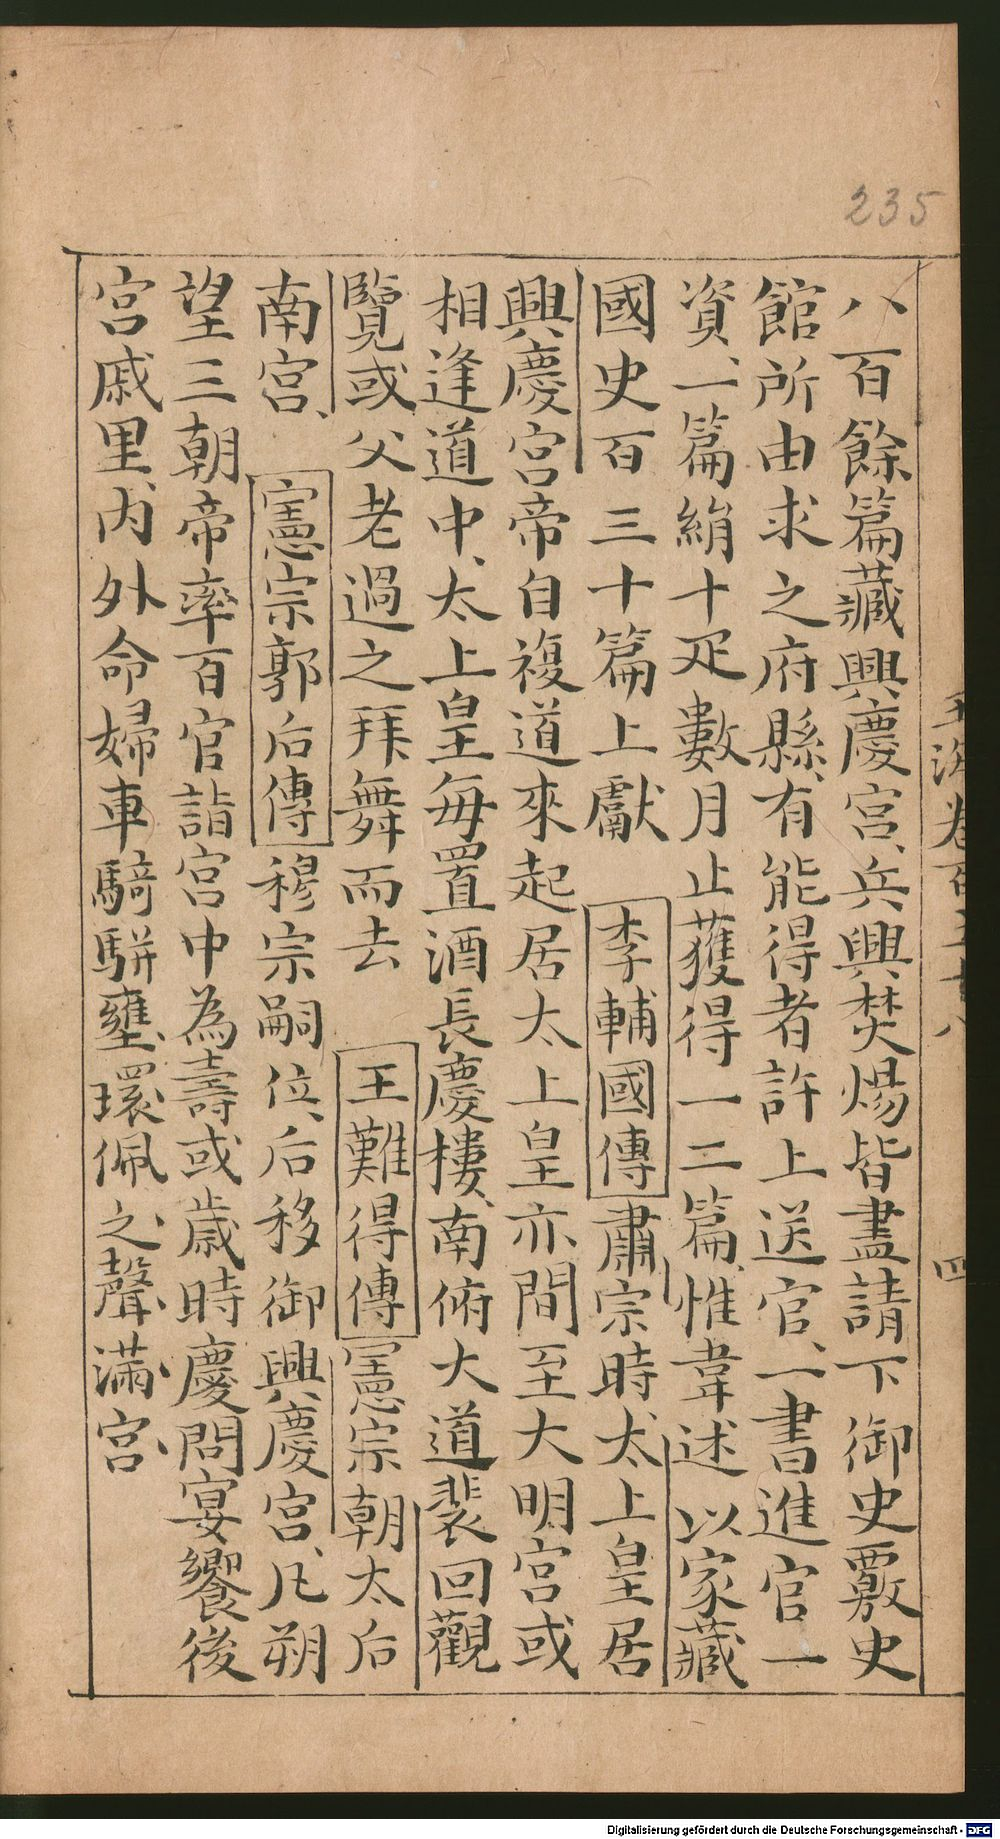 235
玉海卷百五十八
四
八百餘篇藏興慶宮、兵興焚煬皆盡請下御史覈史
館所由求之府縣、有能得者許上送官、一書進官一
資、一篇絹十疋數月止獲得一二篇、惟韋述以家藏
國史百三十篇上獻 李輔國傳肅宗時、太上皇居
興慶宮帝自複道來起居太上皇亦間至大明宮或
相逢道中、太上皇每置酒長慶樓、南俯大道裴回觀
覽或父老過之拜舞而去 王難得傳憲宗朝太后
南宮、 憲宗郭后傳穆宗嗣位、后移御興慶宮、凡朔
望三朝帝率百官詣宮中為壽或歲時慶問宴饗後
宮戚里、内外命婦車騎駢壅、環佩之聲滿宮
Digitalisierung gefördert durch die Deutsche Forschungsgemeinschaft - DFG